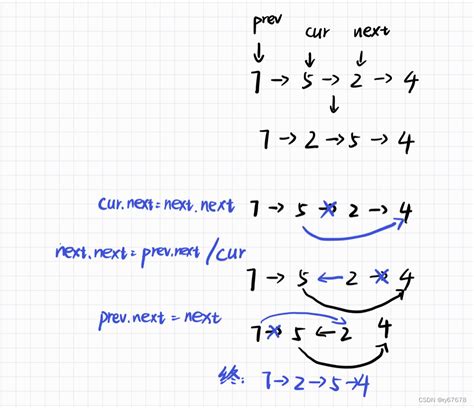 prev cur next
↓ ↓ ↓
7 → 5 → 2 → 4
↓
7 → 2 → 5 → 4
cur.next=next.next 7 → 5 → 2 → 4
next.next=prev.next/cur 7 → 5 ← 2 → 4
prev.next=next 7 → 5 ← 2 4
终: 7→2→5→4
CSDN @ly67678